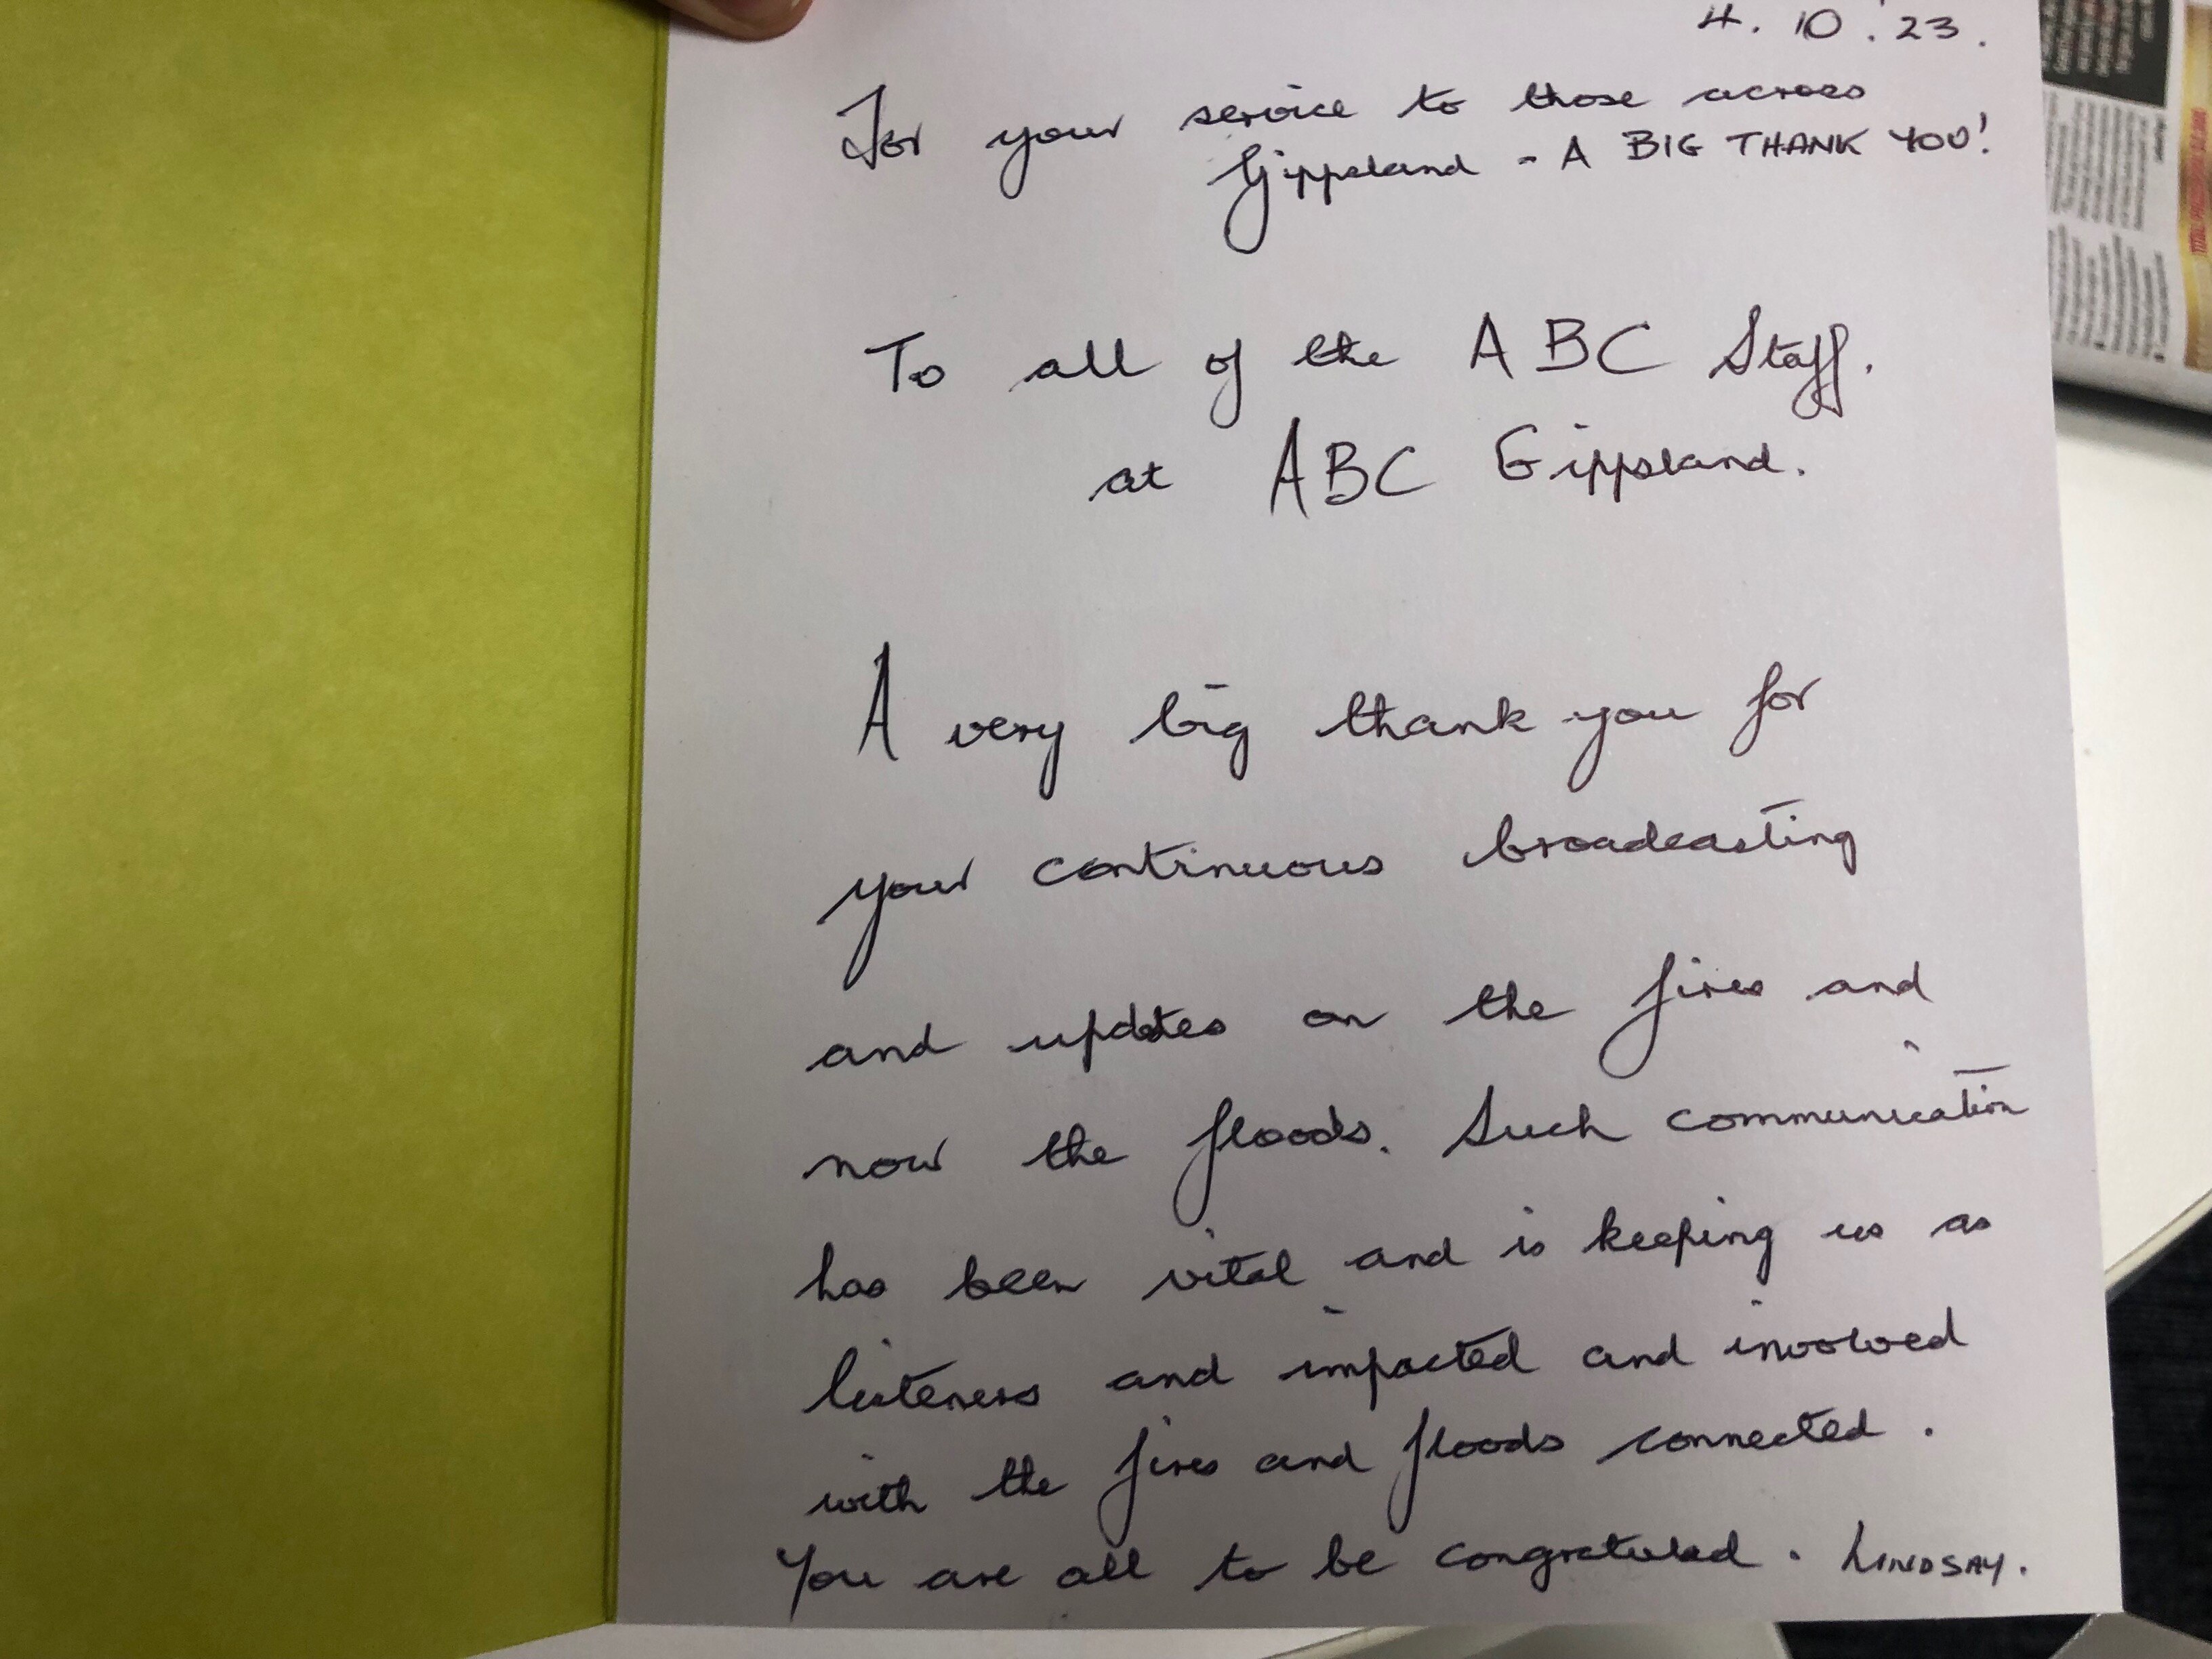 4. 10. '23.
For your service to those across
Gippsland - A BIG THANK YOU!
To all of the ABC Staff.
at ABC Gippsland.
A very big thank you for
your continuous broadcasting
and updates on the fires and
now the floods. Such communication
has been vital and is keeping us as
listeners and impacted and involved
with the fires and floods connected.
You are all to be congratulated. LINDSAY.